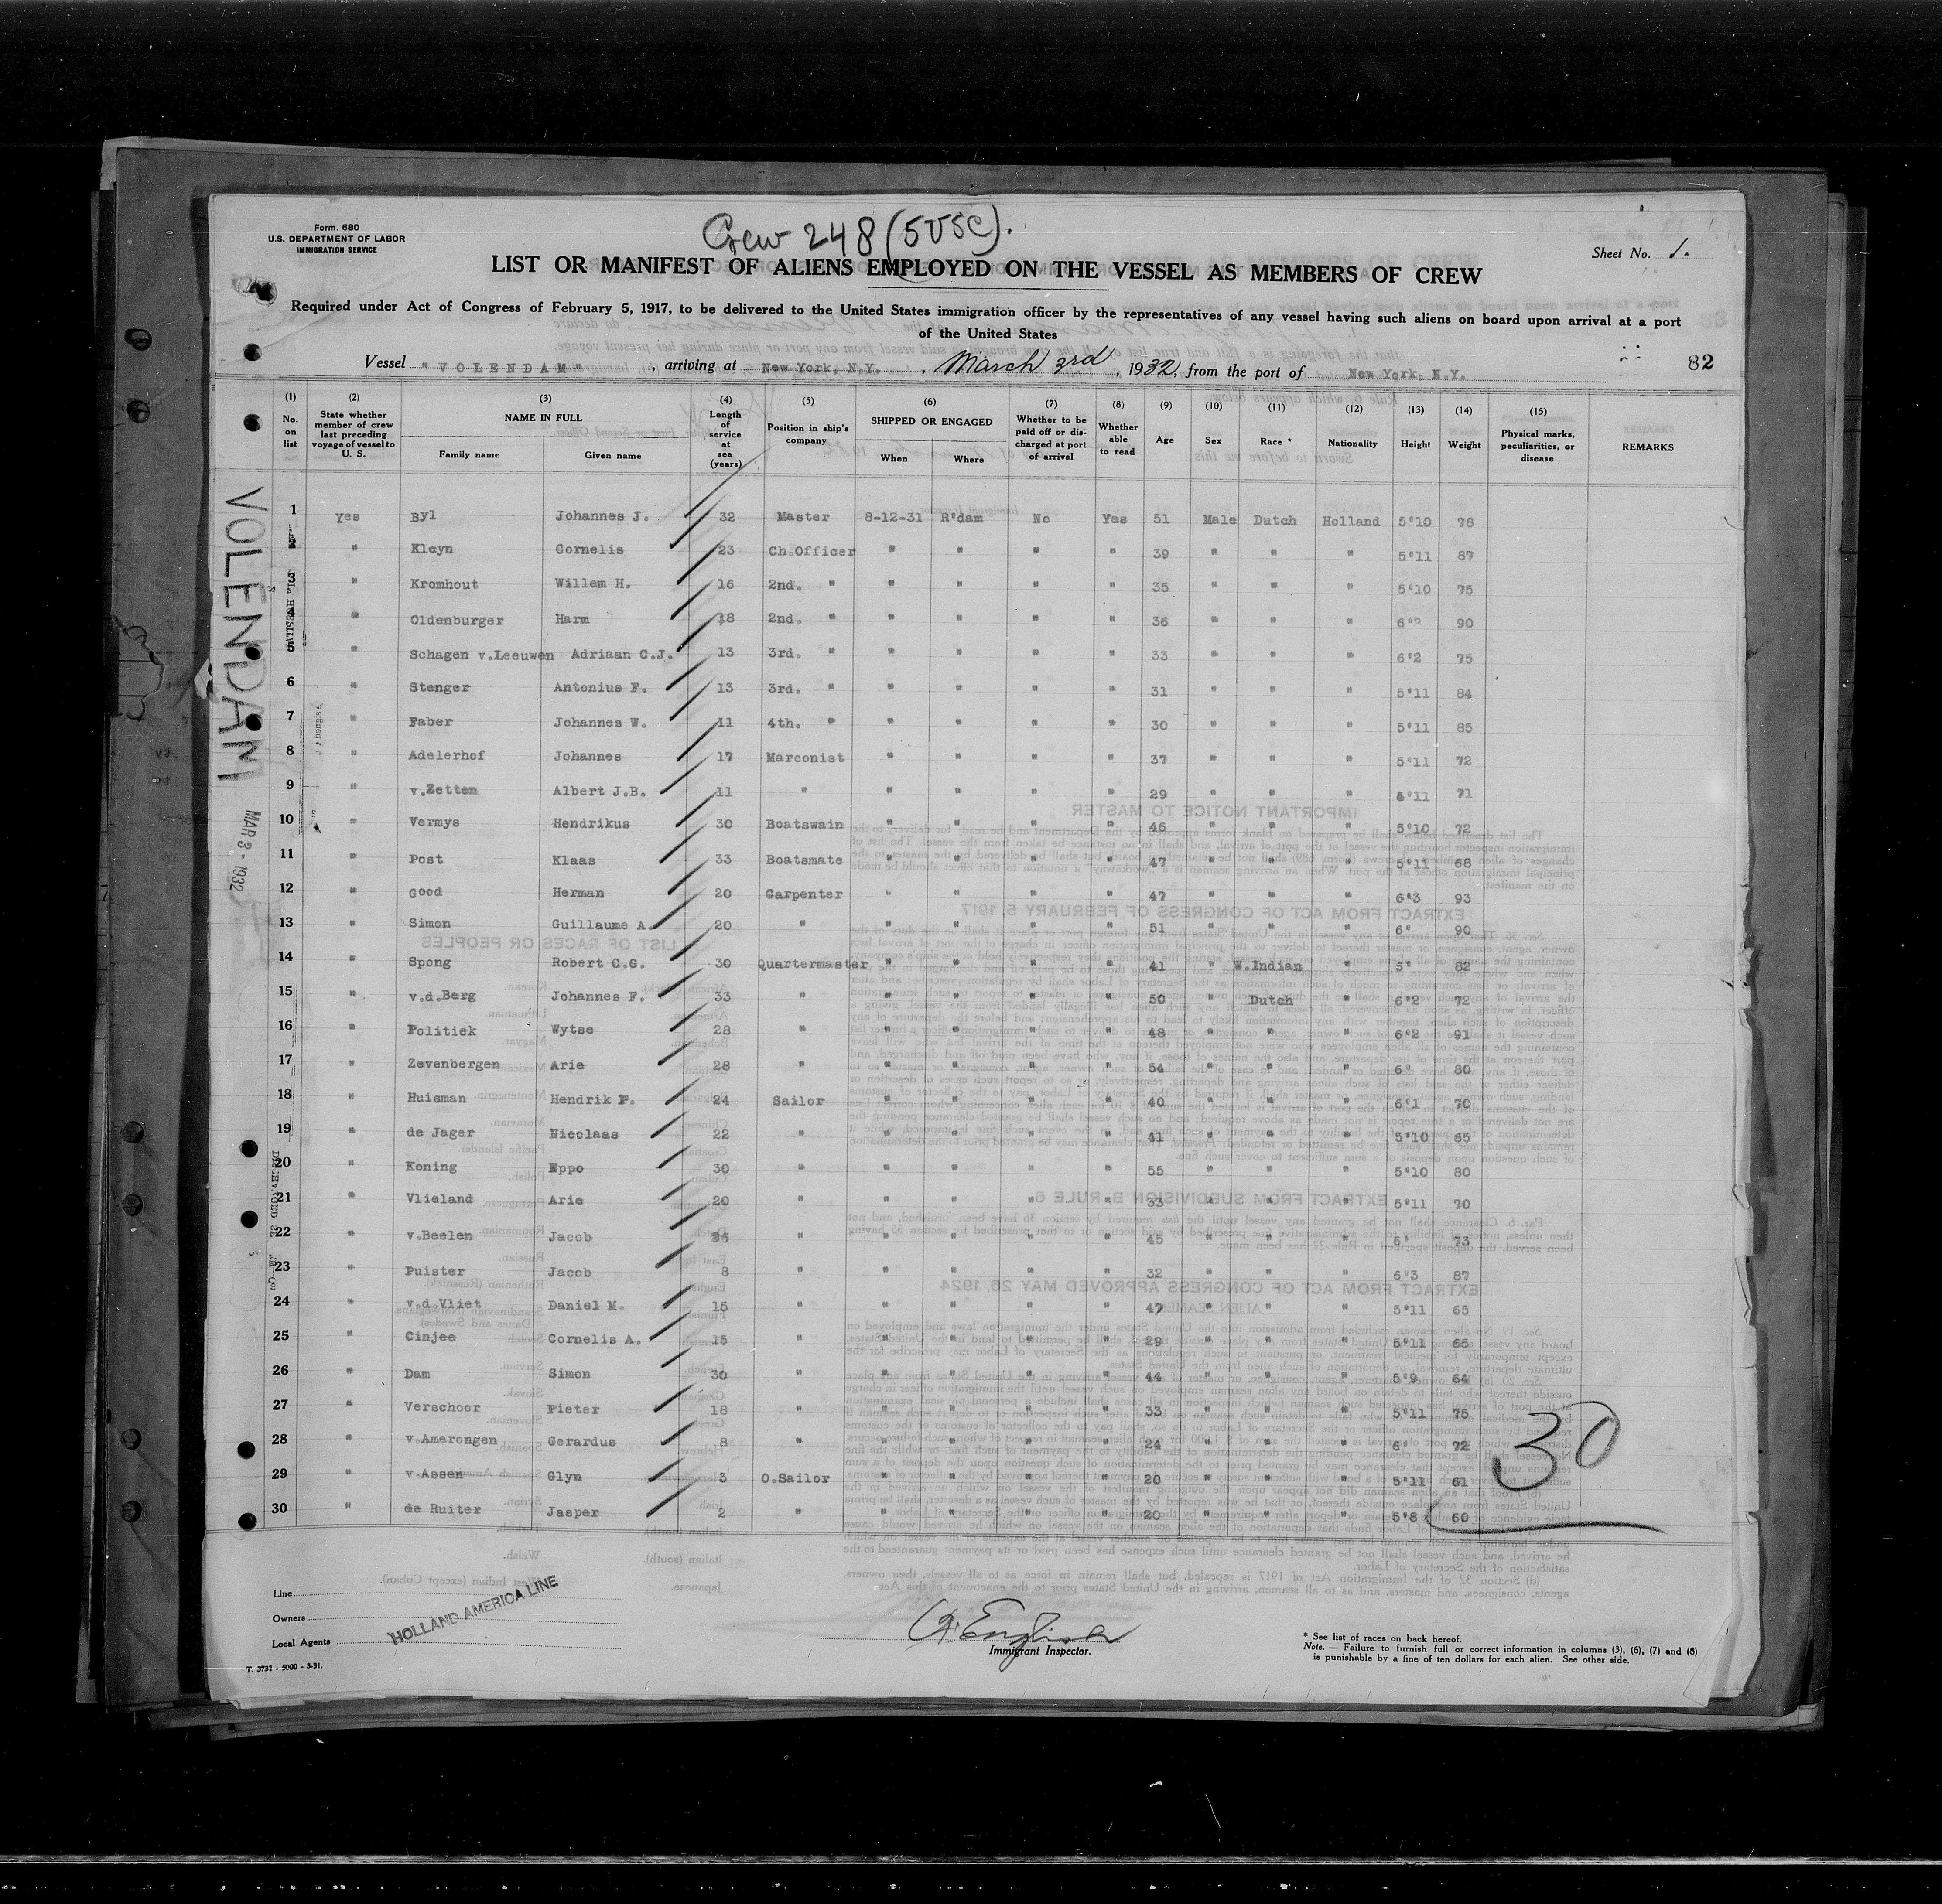 Form. 680
U.S. DEPARTMENT OF LABOR
IMMIGRATION SERVICE
Crew 248 (5 USC).
Sheet No. 1.
LIST OR MANIFEST OF ALIENS EMPLOYED ON THE VESSEL AS MEMBERS OF CREW
Required under Act of Congress of February 5, 1917, to be delivered to the United States immigration officer by the representatives of any vessel having such aliens on board upon arrival at a port
of the United States
Vessel "VOLENDAM", arriving at New York, N.Y., March 3rd, 1932, from the port of New York, N.Y.
82
(1) No. on list
(2) State whether member of crew last preceding voyage of vessel to U. S.
(3) NAME IN FULL Family name Given name
(4) Length of service at sea (years)
(5) Position in ship's company
(6) SHIPPED OR ENGAGED When Where
(7) Whether to be paid off or discharged at port of arrival
(8) Whether able to read
(9) Age
(10) Sex
(11) Race *
(12) Nationality
(13) Height
(14) Weight
(15) Physical marks, peculiarities, or disease
REMARKS
1 Yes Byl Johannes J. 32 Master 8-12-31 R'dam No Yes 51 Male Dutch Holland 5'10 78
2 " Kleyn Cornelis 23 Ch.Officer " " " " 39 " " " 5'11 87
3 " Kromhout Willem H. 16 2nd. " " " " " 35 " " " 5'10 75
4 " Oldenburger Harm 18 2nd. " " " " " 36 " " " 6'2 90
5 " Schagen v.Leeuwen Adriaan C.J. 13 3rd. " " " " " 33 " " " 6'2 75
6 " Stenger Antonius F. 13 3rd. " " " " " 31 " " " 5'11 84
7 " Faber Johannes W. 11 4th. " " " " " 30 " " " 5'11 85
8 " Adelerhof Johannes 17 Marconist " " " " 37 " " " 5'11 72
9 " v.Zetten Albert J.B. 11 " " " " " 29 " " " 5'11 71
10 " Vermys Hendrikus 30 Boatswain " " " " 46 " " " 5'10 72
11 " Post Klaas 33 Boatsmate " " " " 47 " " " 5'11 68
12 " Good Herman 20 Carpenter " " " " 47 " " " 6'3 93
13 " Simon Guillaume A. 20 " " " " " 51 " " " 6' 90
14 " Spong Robert C.G. 30 Quartermaster " " " " 41 " W.Indian " 5' 82
15 " v.d.Berg Johannes F. 33 " " " " " 50 " Dutch " 6'2 72
16 " Politiek Wytse 28 " " " " " 48 " " " 6'2 91
17 " Zevenbergen Arie 28 " " " " " 54 " " " 6' 80
18 " Huisman Hendrik P. 24 Sailor " " " " 40 " " " 6'1 70
19 " de Jager Nicolaas 22 " " " " " 41 " " " 5'10 65
20 " Koning Eppo 30 " " " " " 55 " " " 5'10 80
21 " Vlieland Arie 20 " " " " " 33 " " " 5'11 70
22 " v.Beelen Jacob 26 " " " " " 45 " " " 6' 73
23 " Puister Jacob 8 " " " " " 32 " " " 6'3 87
24 " v.d.Vliet Daniel M. 15 " " " " " 47 " " " 5'11 65
25 " Cinjee Cornelis A. 15 " " " " " 29 " " " 5'11 65
26 " Dam Simon 30 " " " " " 44 " " " 5'9 64
27 " Verschoor Pieter 18 " " " " " 33 " " " 5'11 75
28 " v.Amerongen Gerardus 8 " " " " " 24 " " " 6' 72
29 " v.Assen Glyn 3 O.Sailor " " " " 20 " " " 5'11 61
30 " de Ruiter Jasper 2 " " " " " 20 " " " 5'8 60
30
VOLENDAM
MAR 3 - 1932
Line
Owners
Local Agents
HOLLAND AMERICA LINE
T. 3732 - 5000 - 3-31.
English
Immigrant Inspector.
* See list of races on back hereof.
Note. — Failure to furnish full or correct information in columns (3), (6), (7) and (8)
is punishable by a fine of ten dollars for each alien. See other side.